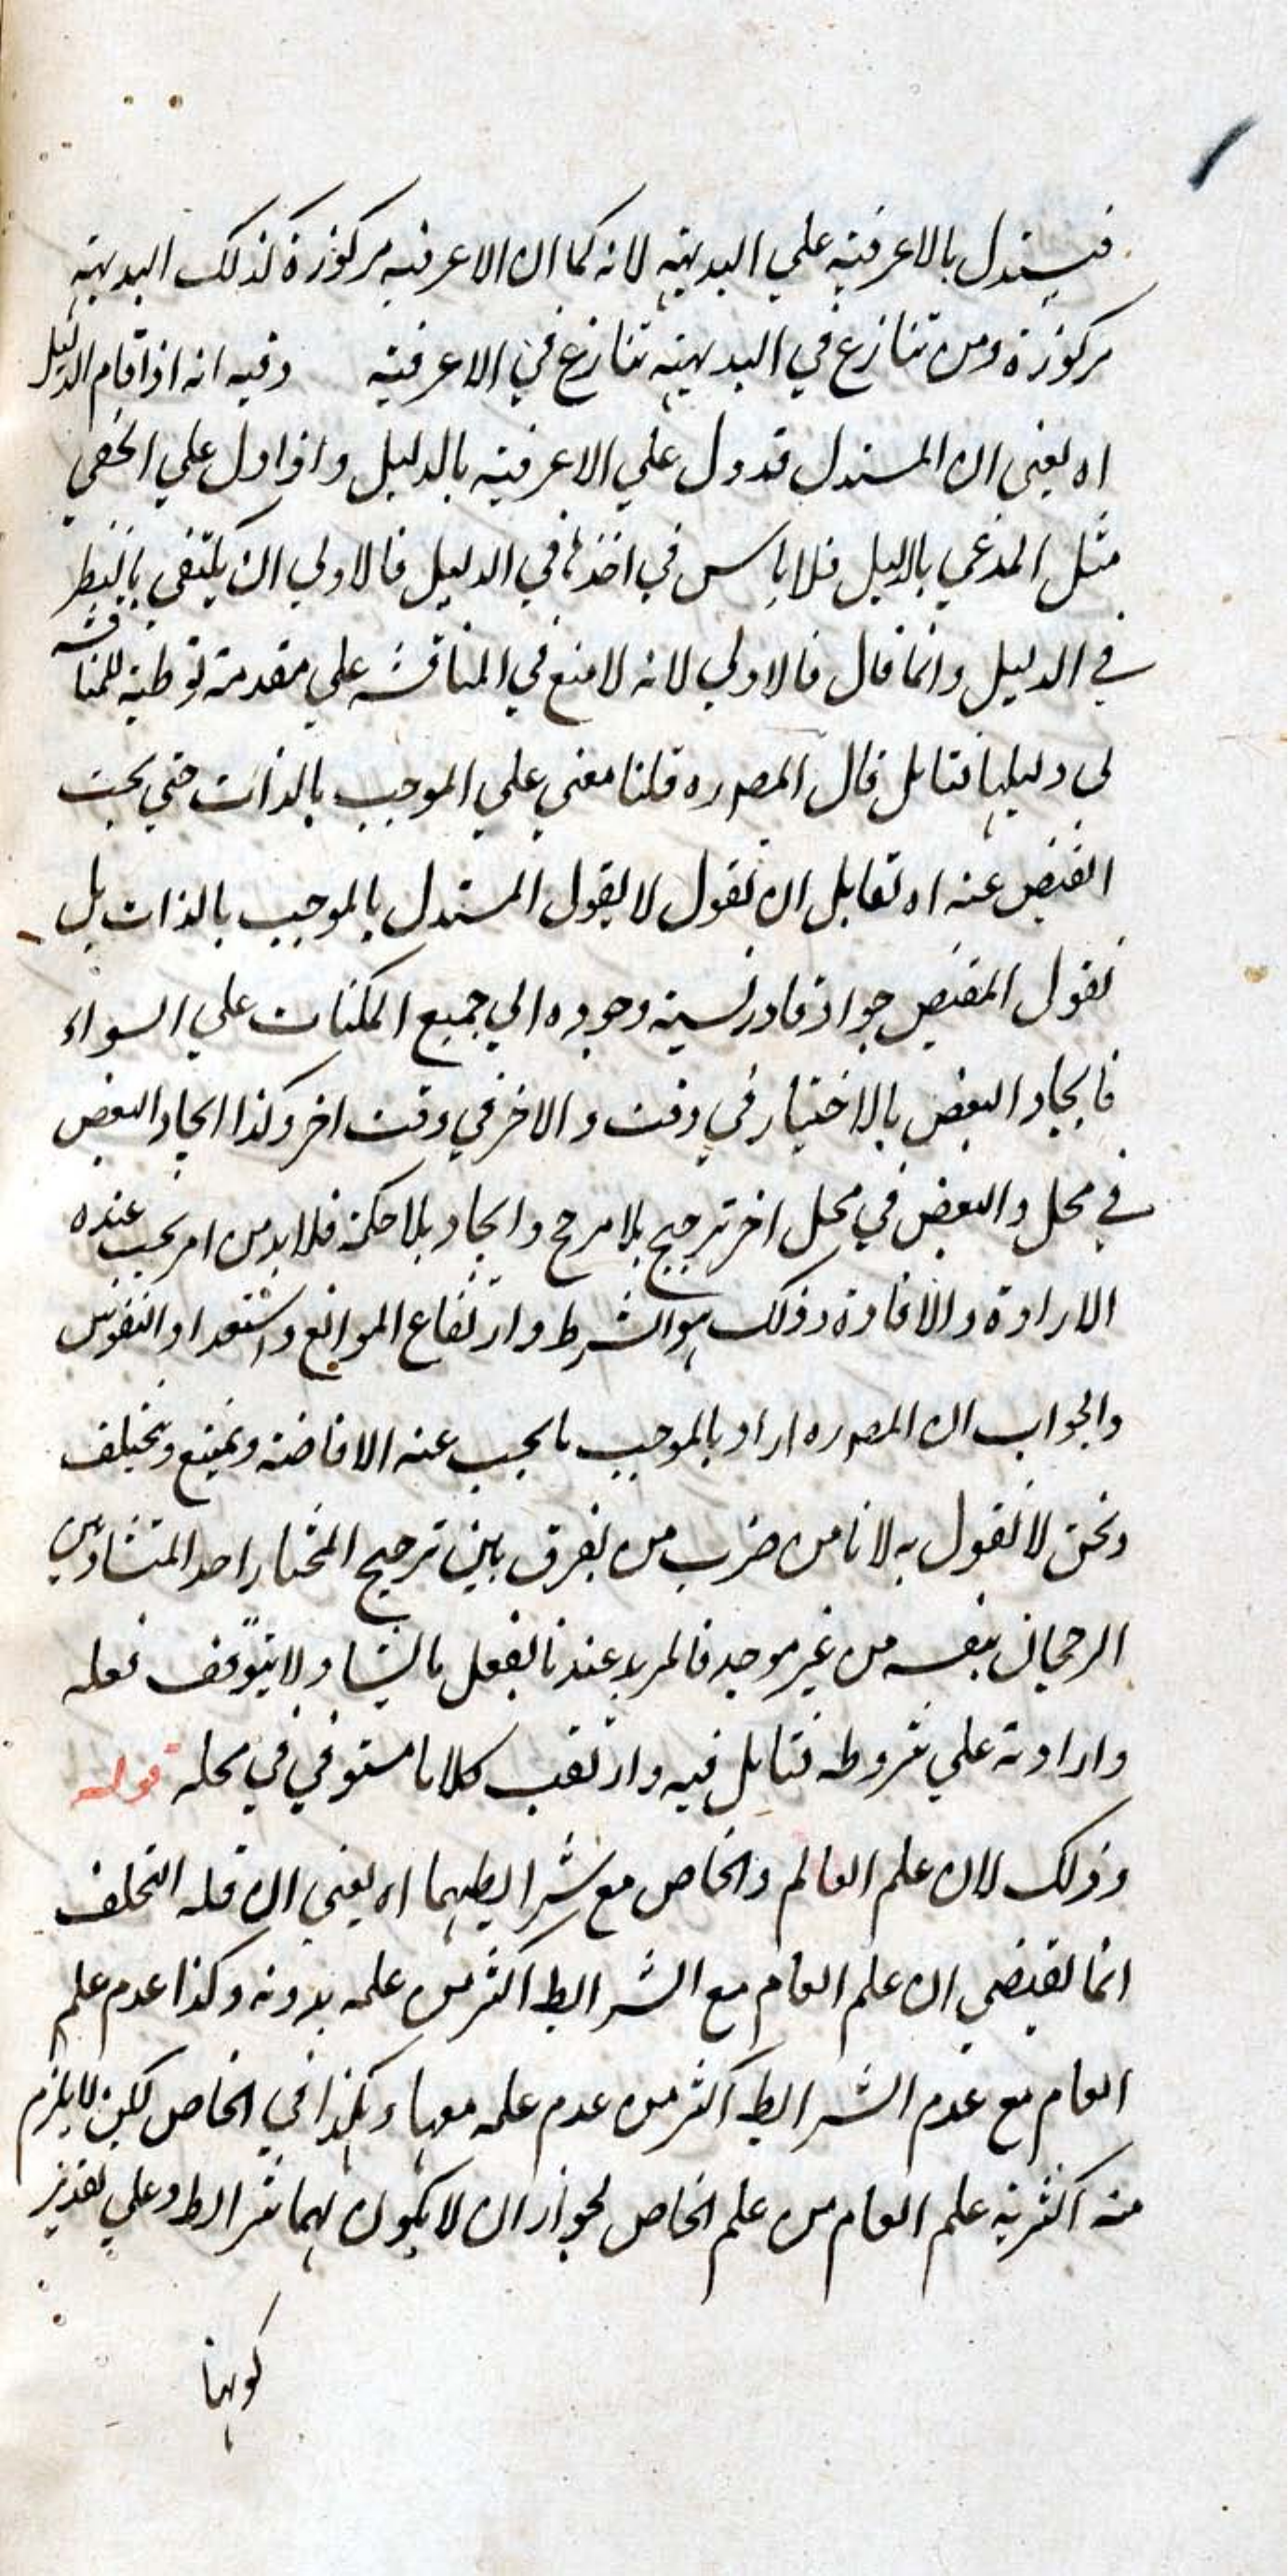 فيستدل بالاعرفية علي البديهية لانه كما ان الاعرفية مركوزة كذلك البديهية
مركوزة ومن تنازع في البديهية تنازع في الاعرفية وفيه انه اذا قام الدليل
اه يعني ان المستدل قد دل علي الاعرفية بالدليل واذا دل علي الخفي
مثل المدعي بالدليل فلا باس في اخذها في الدليل فالاولي ان يكتفي بالنظر
في الدليل وانما قال فالاولي لانه لا منع في المناقشة علي مقدمة توطية للمناقشة
لي دليلها فتامل قال المصره قلنا معني علي الموجب بالذات حتي يجب
الفيض عنه اه لقايل ان يقول لا يقول المستدل بالموجب بالذات بل
يقول المفيض جواد قادر نسبة وجوده الي جميع الممكنات علي السواء
فايجاد البعض بالاختيار في وقت والاخر في وقت اخر وكذا ايجاد البعض
في محل والبعض في محل اخر ترجيح بلا مرجح وايجاد بلا حكمة فلا بد من امر يجب عنده
الارادة والافادة وذلك هو الشرط وارتفاع الموانع واستعداد النفوس
والجواب ان المصره اراد بالموجب ما يجب عنه الافاضة ويمتنع وتخلف
ونحن لا نقول به لانا من ضرب من يفرق بين ترجيح المختار احد المتساويين
الرجحان بنفسه من غير موجد فالمريد عندنا يفعل ما يشاء ولا يتوقف فعله
وارادته علي شروطه فتامل فيه وارتقب كلاما مستوفي في محله قوله
وذلك لان علم العالم والخاص مع شرايطهما اه يعني ان قلة التخلف
انما يقتضي ان علم العام مع الشرايط اكثر من علمه بدونه وكذا عدم علم
العام مع عدم الشرايط اكثر من عدم علمه معها وهكذا في الخاص لكن لا يلزم
منه اكثرية علم العام من علم الخاص لجواز ان لا يكون لهما شرايط وعلي تقدير
كونهما